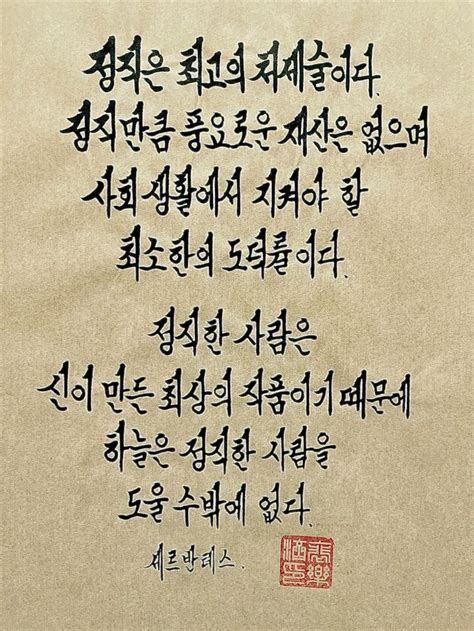 정직은 최고의 처세술이다.
정직만큼 풍요로운 재산은 없으며
사회 생활에서 지켜야 할
최소한의 도덕률이다.
정직한 사람은
신이 만든 최상의 작품이기 때문에
하늘은 정직한 사람을
도울 수밖에 없다.
세르반테스.